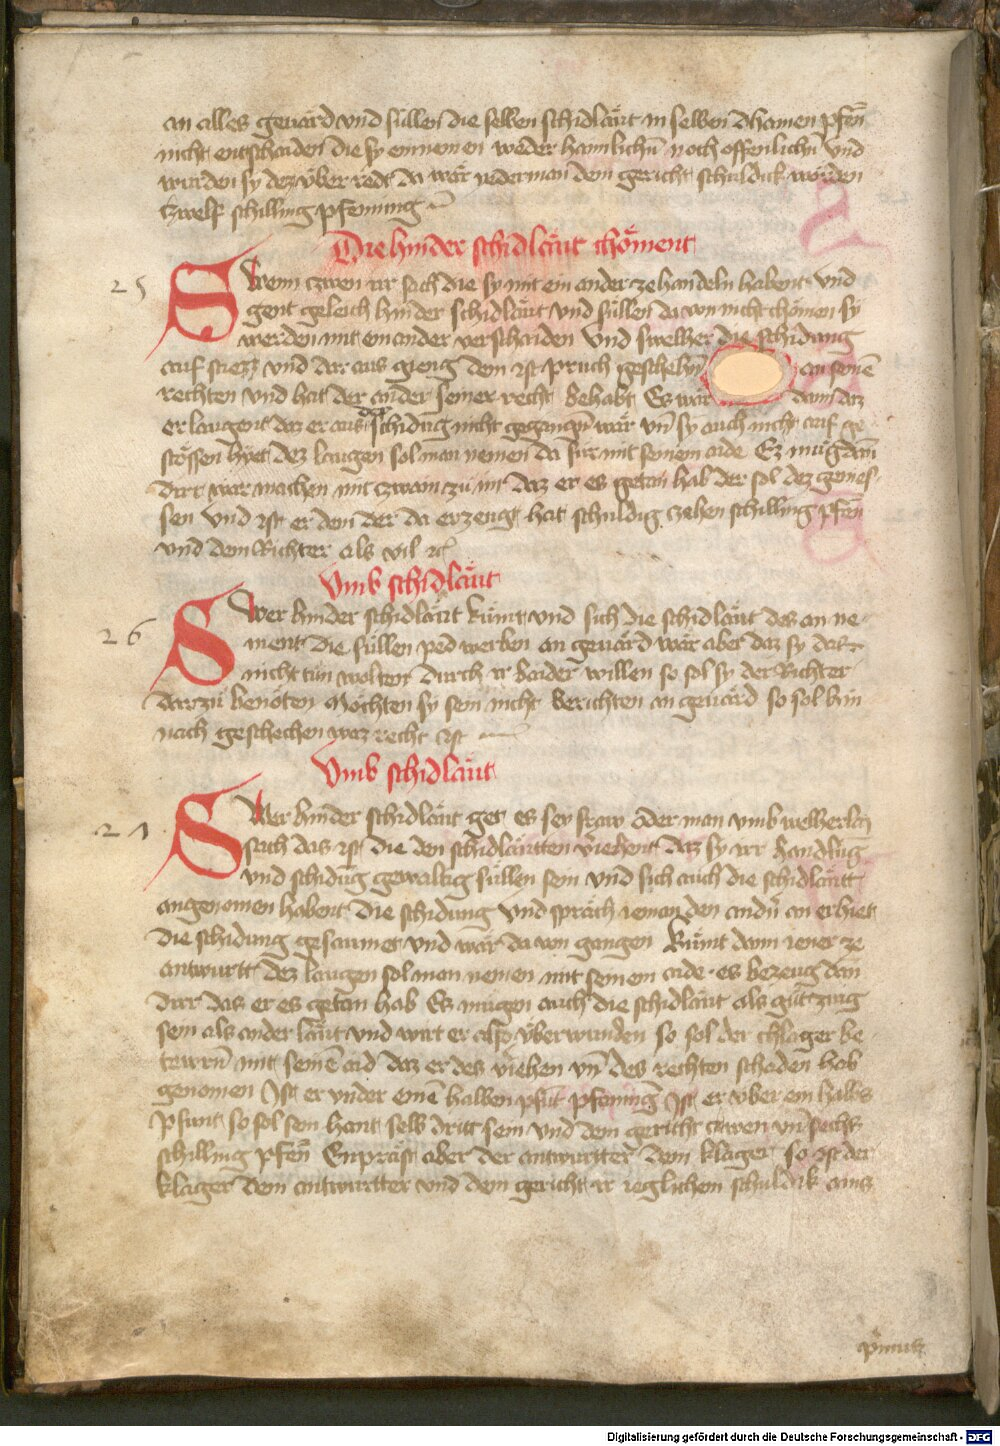 an alles geuärd vnd süllen die selben schidläut in selben dhainen pfen̄
nicht entschaiden die sy ein nemen weder haimlichn̄ noch offenlichn̄ vnd
wurden sy dez vber redt da wär yederman dem gericht schuldik worden
tzwelf schilling pfenning
Die hinder schidläut chöment
25 Swenn czwen vir sich die sy mit ein ander ze handeln habent vnd
gent geleich hinder schidläut vnd süllen da von nicht chömen sy
werden mit einander verschaiden Vnd swelher die schidung
auf stiezz vnd dar aus gieng dem ist spruch geschehn̄ an seinē
rechten vnd hat der ander seinew recht behabt Ez wär dann daz
er laugent daz er aus der schidung nicht gegangn̄ wär vn̄ sy auch nicht auf ge
stössen hyet dez laugen sol man nemen da für mit seinem aide Ez müg dan̄
dirr war machen mit zwain zu im daz er es getan hab der sol dez genies
sen Vnd ist er dem der da erzeugt hat schuldig zehen schilling pfen̄
vnd dem Richter als vil
Vmb schidläut
26 Swer hinder schidläut kümt vnd sich die schidläut des an ne
ment die süllen ped werben an geuärd wär aber daz sy daz
nicht tün wolten durch ir baider willen so sol sy der Richter
darzu benöten Möchten sy sein nicht berichten an geuärd so sol hin
nach geschechen waz recht ist
Vmb schidläut
27 Swer hinder schidläut get es sey fraw oder man vmb welherlay
sach das ist die den schidläutten v̄iehent daz sy irr handlūg
vnd schidūg gewaltig süllen sein vnd sich auch die schidläut
angenomen habent die schidung vnd spräch ieman den andn̄ an er hiet
die schidung gesaumet vnd wär da von gangen Kümt dann iener ze
antwurtt dez laugen sol man nemen mit seinem aide es bezeug dan̄
dirr das er es getan hab Ez mügen auch die schidläut als gūt zewg
sein als ander läut vnd wirt er also vberwunden so sol der chlager be
tewrn̄ mit seinē aid daz er des v̄iehen vn̄ des rechten schaden hab
genomen Ist er vnder einē halben pfūt pfenning Ist er vber ein halbs
pfunt so sol sein hant selb dritt sein vnd dem gericht czwen vn̄ sechs
schilling pfen̄ Enpräst aber der antwurtter dem klager so ist der
klager dem antwurtter vnd dem gericht ir ieglichem schuldik ains
Digitalisierung gefördert durch die Deutsche Forschungsgemeinschaft - DFG